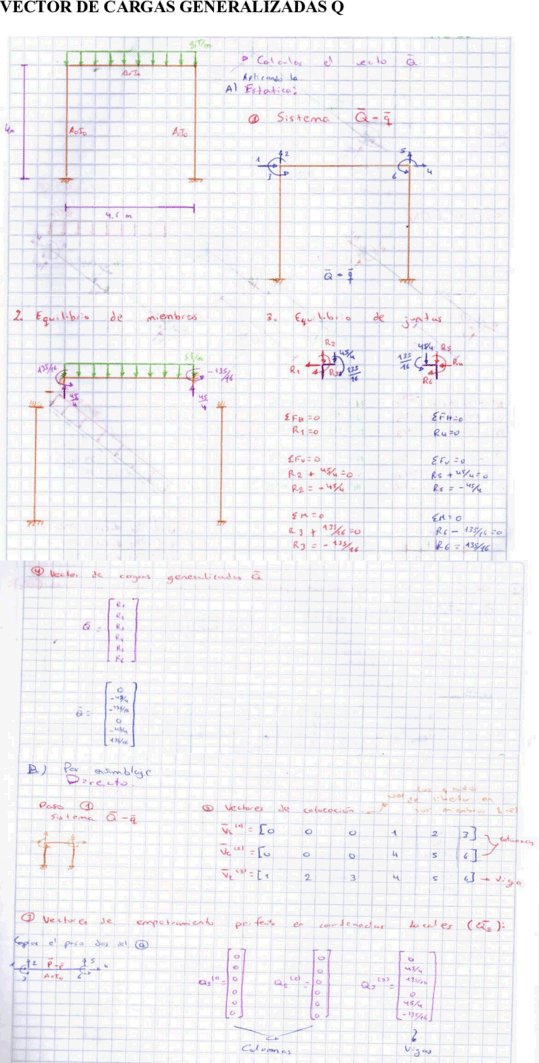 VECTOR DE CARGAS GENERALIZADAS Q
5T/m
AoIo
AoIo
AoIo
4m
4.5 m
▷ Calcular el vector Q̄
Aplicando la
A) Estática:
① Sistema Q̄-q̄
1
2
3
5
4
6
Q̄ = q̄
2. Equilibrio de miembros
5T/m
135/16
-135/16
45/4
45/4
3. Equilibrio de juntas
R2
45/4
R1
R3
135/16
45/4
R5
135/16
R4
R6
ΣFH=0
R1=0
ΣFV=0
R2 + 45/4=0
R2 = -45/4
ΣM=0
R3 + 135/16=0
R3 = -135/16
ΣFH=0
R4=0
ΣFV=0
R5 + 45/4=0
R5 = -45/4
ΣM=0
R6 - 135/16=0
R6 = 135/16
④ Vector de cargas generalizadas Q̄
Q̄ =
R1
R2
R3
R4
R5
R6
Q̄ =
0
-45/4
-135/16
0
-45/4
135/16
B) Por ensamblaje
Directo.
Paso ①
sistema Q̄-q̄
② Vectores de colocación
V̄c(1) = [0 0 0 1 2 3]
V̄c(2) = [0 0 0 4 5 6]
columnas
V̄c(3) = [1 2 3 4 5 6] → Viga
③ Vectores de empotramiento perfecto en coordenadas locales
1
2
3
5
4
6
AoIo
(1)
0
0
0
0
0
0
(2)
0
0
0
0
0
0
(3)
0
45/4
135/16
0
45/4
-135/16
Columnas
Vigas